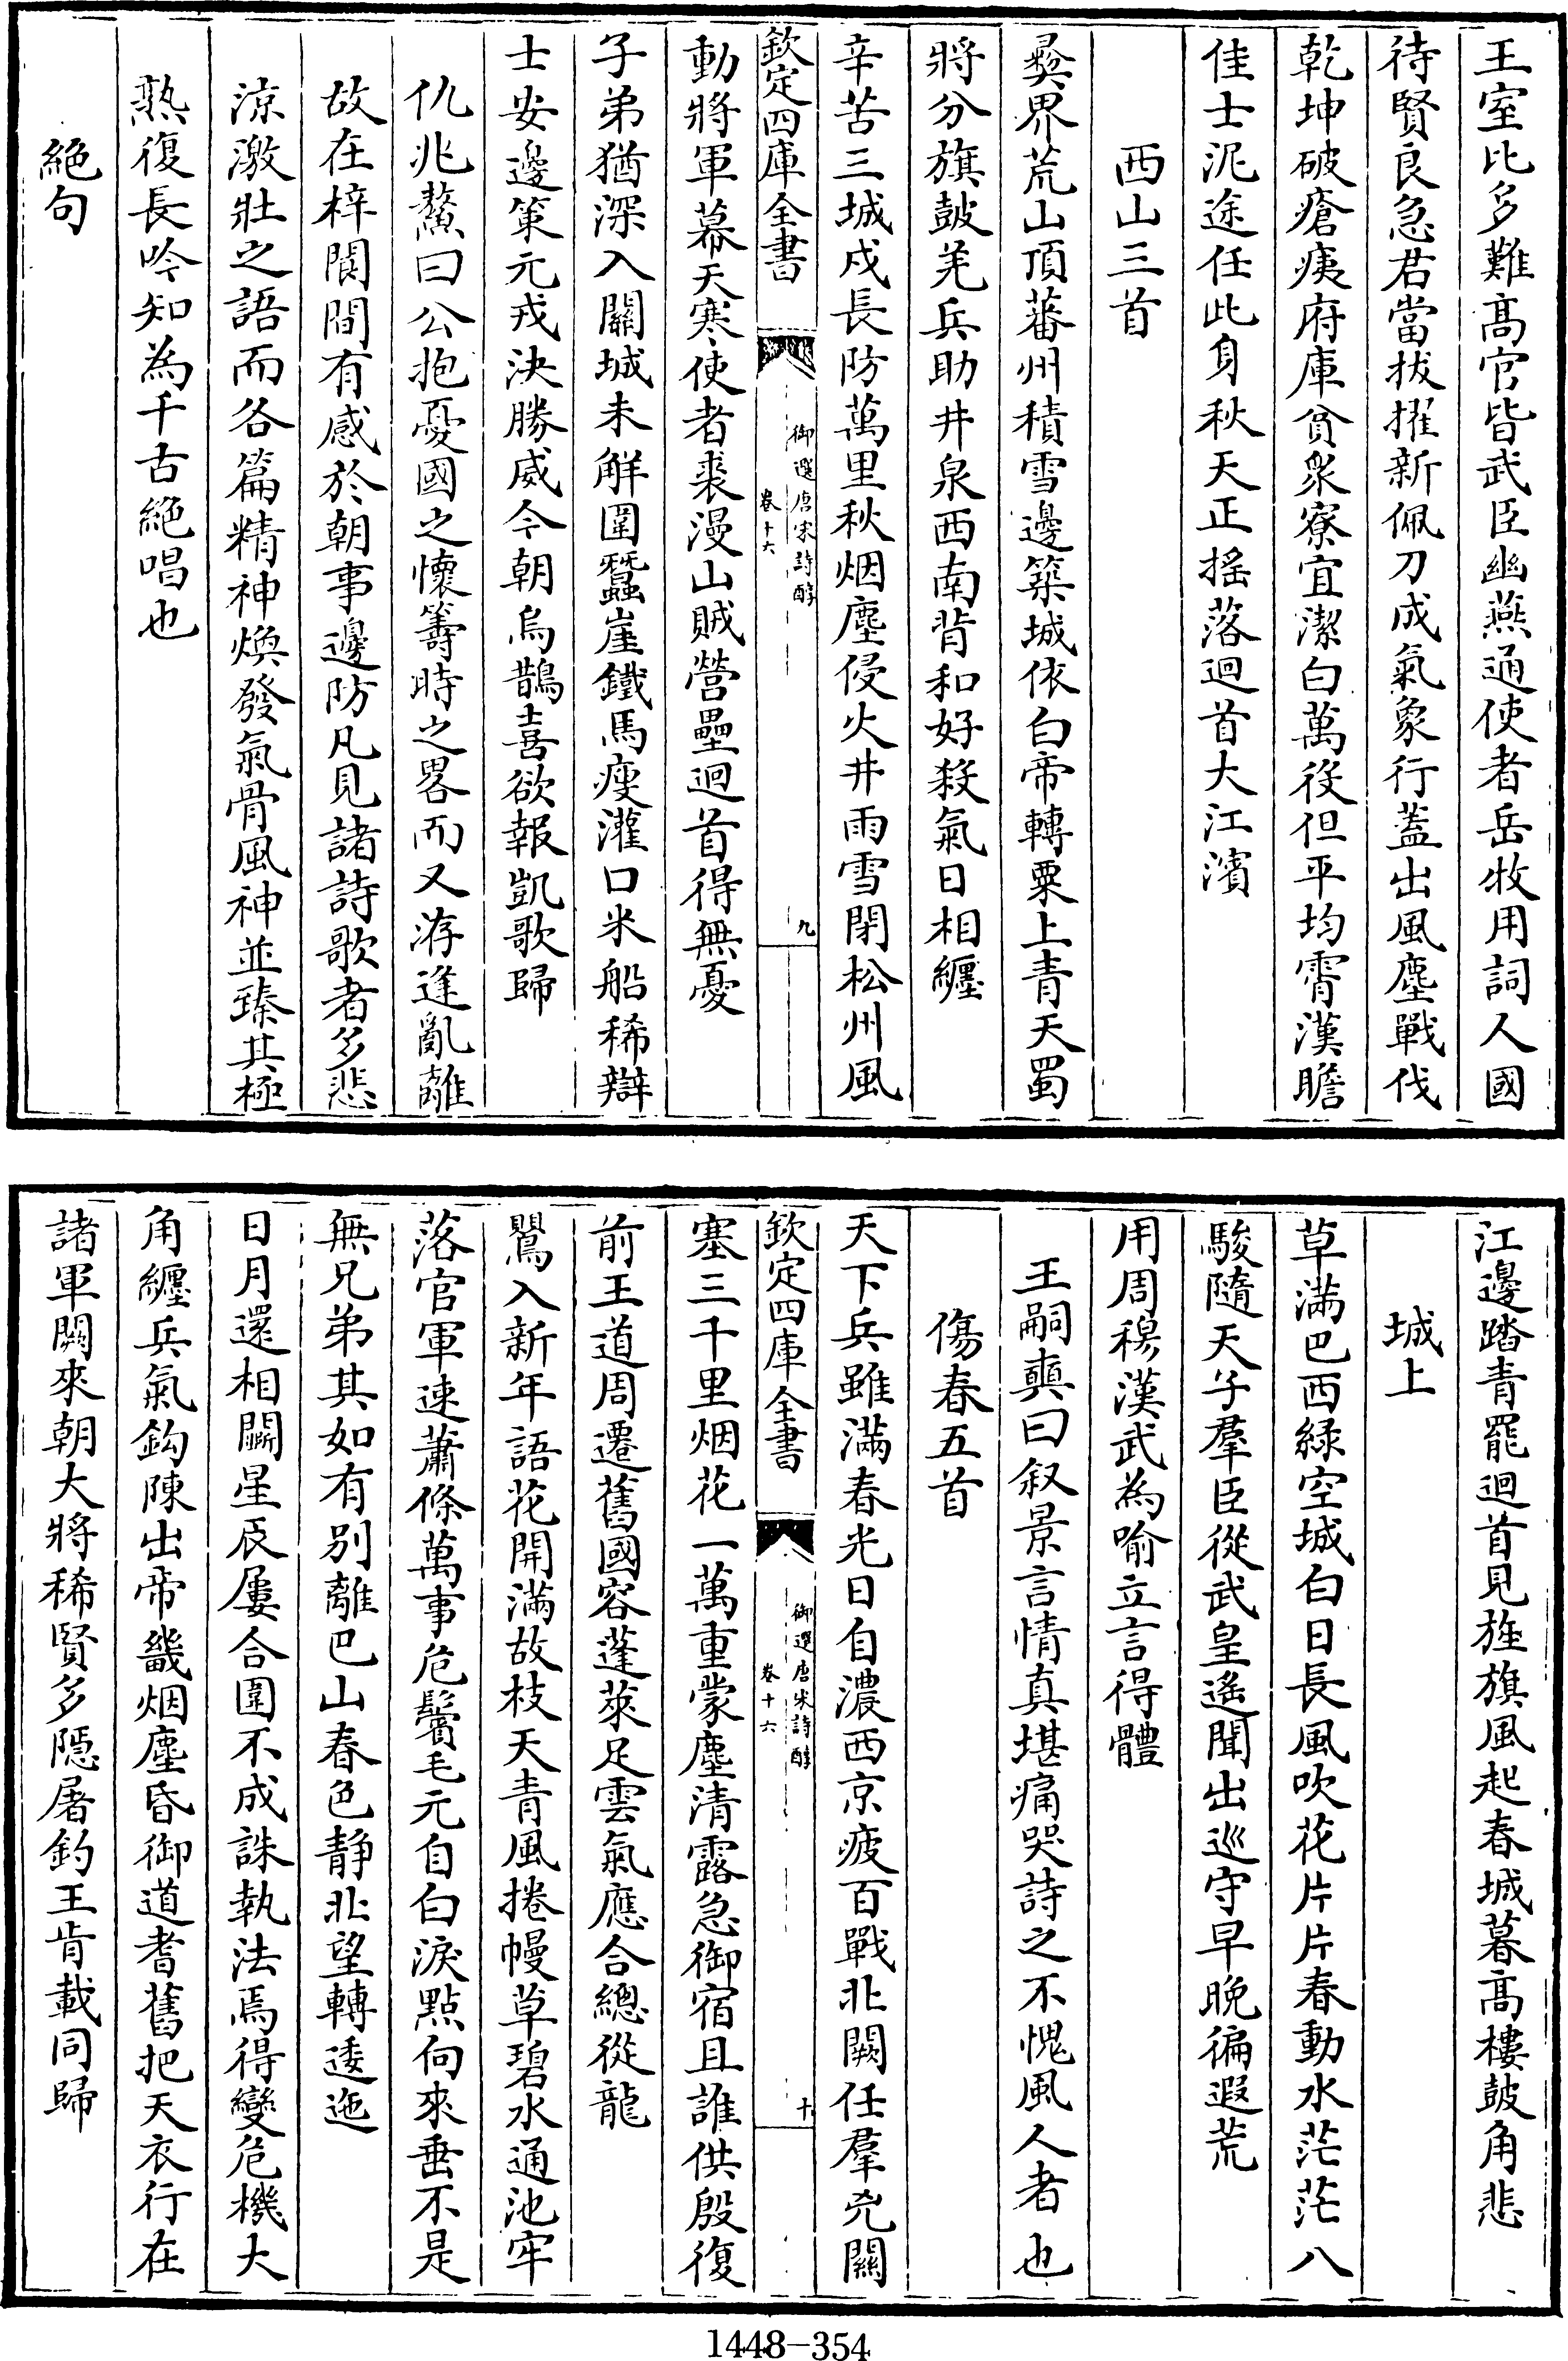 王室比多難髙官皆武臣幽燕通使者岳牧用詞人國
待賢良急君當拔擢新佩刀成氣象行蓋出風塵戰伐
乾坤破瘡痍府庫貧衆寮宜潔白萬役但平均霄漢瞻
佳士泥途任此身秋天正搖落迴首大江濱
西山三首
彛界荒山頂蕃州積雪邊築城依白帝轉粟上青天蜀
將分旗鼓羌兵助井泉西南背和好殺氣日相纒
辛苦三城戍長防萬里秋烟塵侵火井雨雪閉松州風
欽定四庫全書
御選唐宋詩醇
卷十六
九
動將軍幕天寒使者裘漫山賊營壘迴首得無憂
子弟猶深入關城未解圍蠶崖鐵馬瘦灌口米船稀辯
士安邊策元戎決勝威今朝烏鵲喜欲報凱歌歸
仇兆鰲曰公抱憂國之懷籌時之畧而又洊逢亂離
故在梓閬間有感於朝事邊防凡見諸詩歌者多悲
涼激壯之語而各篇精神煥發氣骨風神並臻其極
熟復長吟知為千古絶唱也
絶句
江邊踏青罷迴首見旌旗風起春城暮髙樓鼓角悲
城上
草滿巴西緑空城白日長風吹花片片春動水茫茫八
駿隨天子羣臣從武皇遙聞出巡守早晚徧遐荒
用周穆漢武為喻立言得體
王嗣奭曰叙景言情真堪痛哭詩之不愧風人者也
傷春五首
天下兵雖滿春光日自濃西京疲百戰北闕任羣兇關
欽定四庫全書
御選唐宋詩醇
卷十六
十
塞三千里烟花一萬重蒙塵清露急御宿且誰供殷復
前王道周遷舊國容蓬萊足雲氣應合總從龍
鶯入新年語花開滿故枝天青風捲幔草碧水通池牢
落官軍速蕭條萬事危鬢毛元自白淚點向來垂不是
無兄弟其如有别離巴山春色静北望轉逶迤
日月還相鬭星辰屢合圍不成誅執法焉得變危機大
角纒兵氣鈎陳出帝畿烟塵昏御道耆舊把天衣行在
諸軍闕來朝大將稀賢多隠屠釣王肯載同歸
1448-354